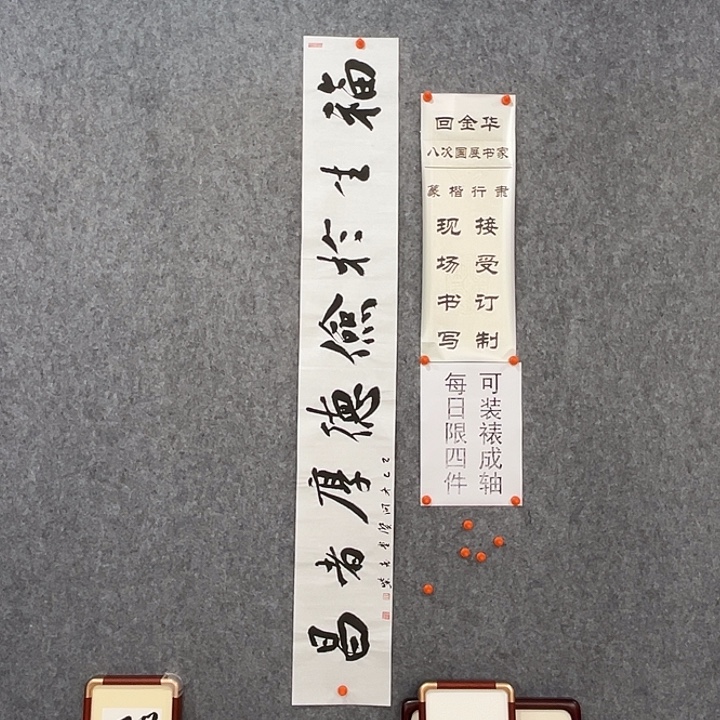 福生於儉德厚者昌
回金华
八次国展书家
篆楷行隶
接受订制
现场书写
可装裱成轴
每日限四件